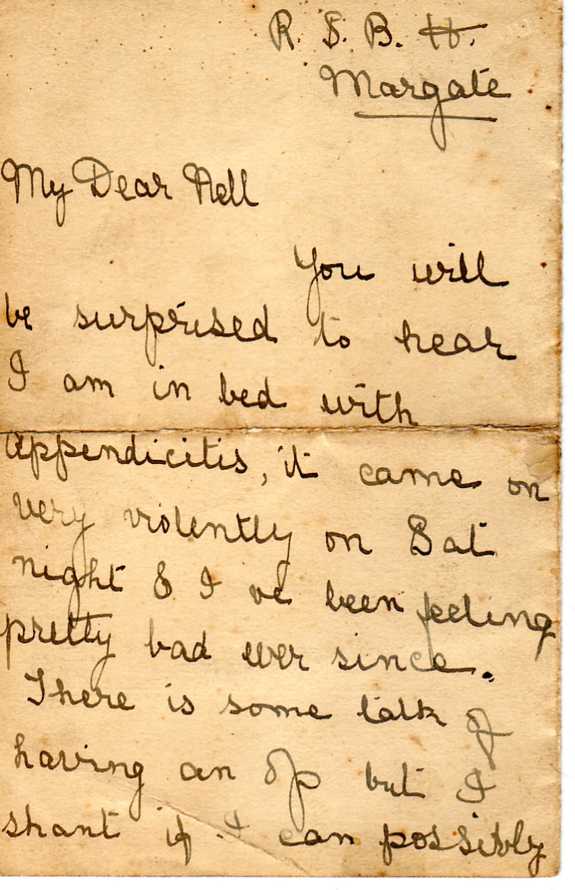 R. S. B. H.
Margate
My Dear Nell
You will
be surprised to hear
I am in bed with
appendicitis, it came on
very violently on Sat
night & I ve been feeling
pretty bad ever since.
There is some talk of
having an op but I
shant if I can possibly